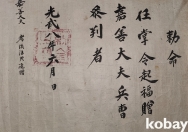 勅命
任掌令起福贈
嘉善大夫兵曹
參判者
光武八年六月 日
kobay